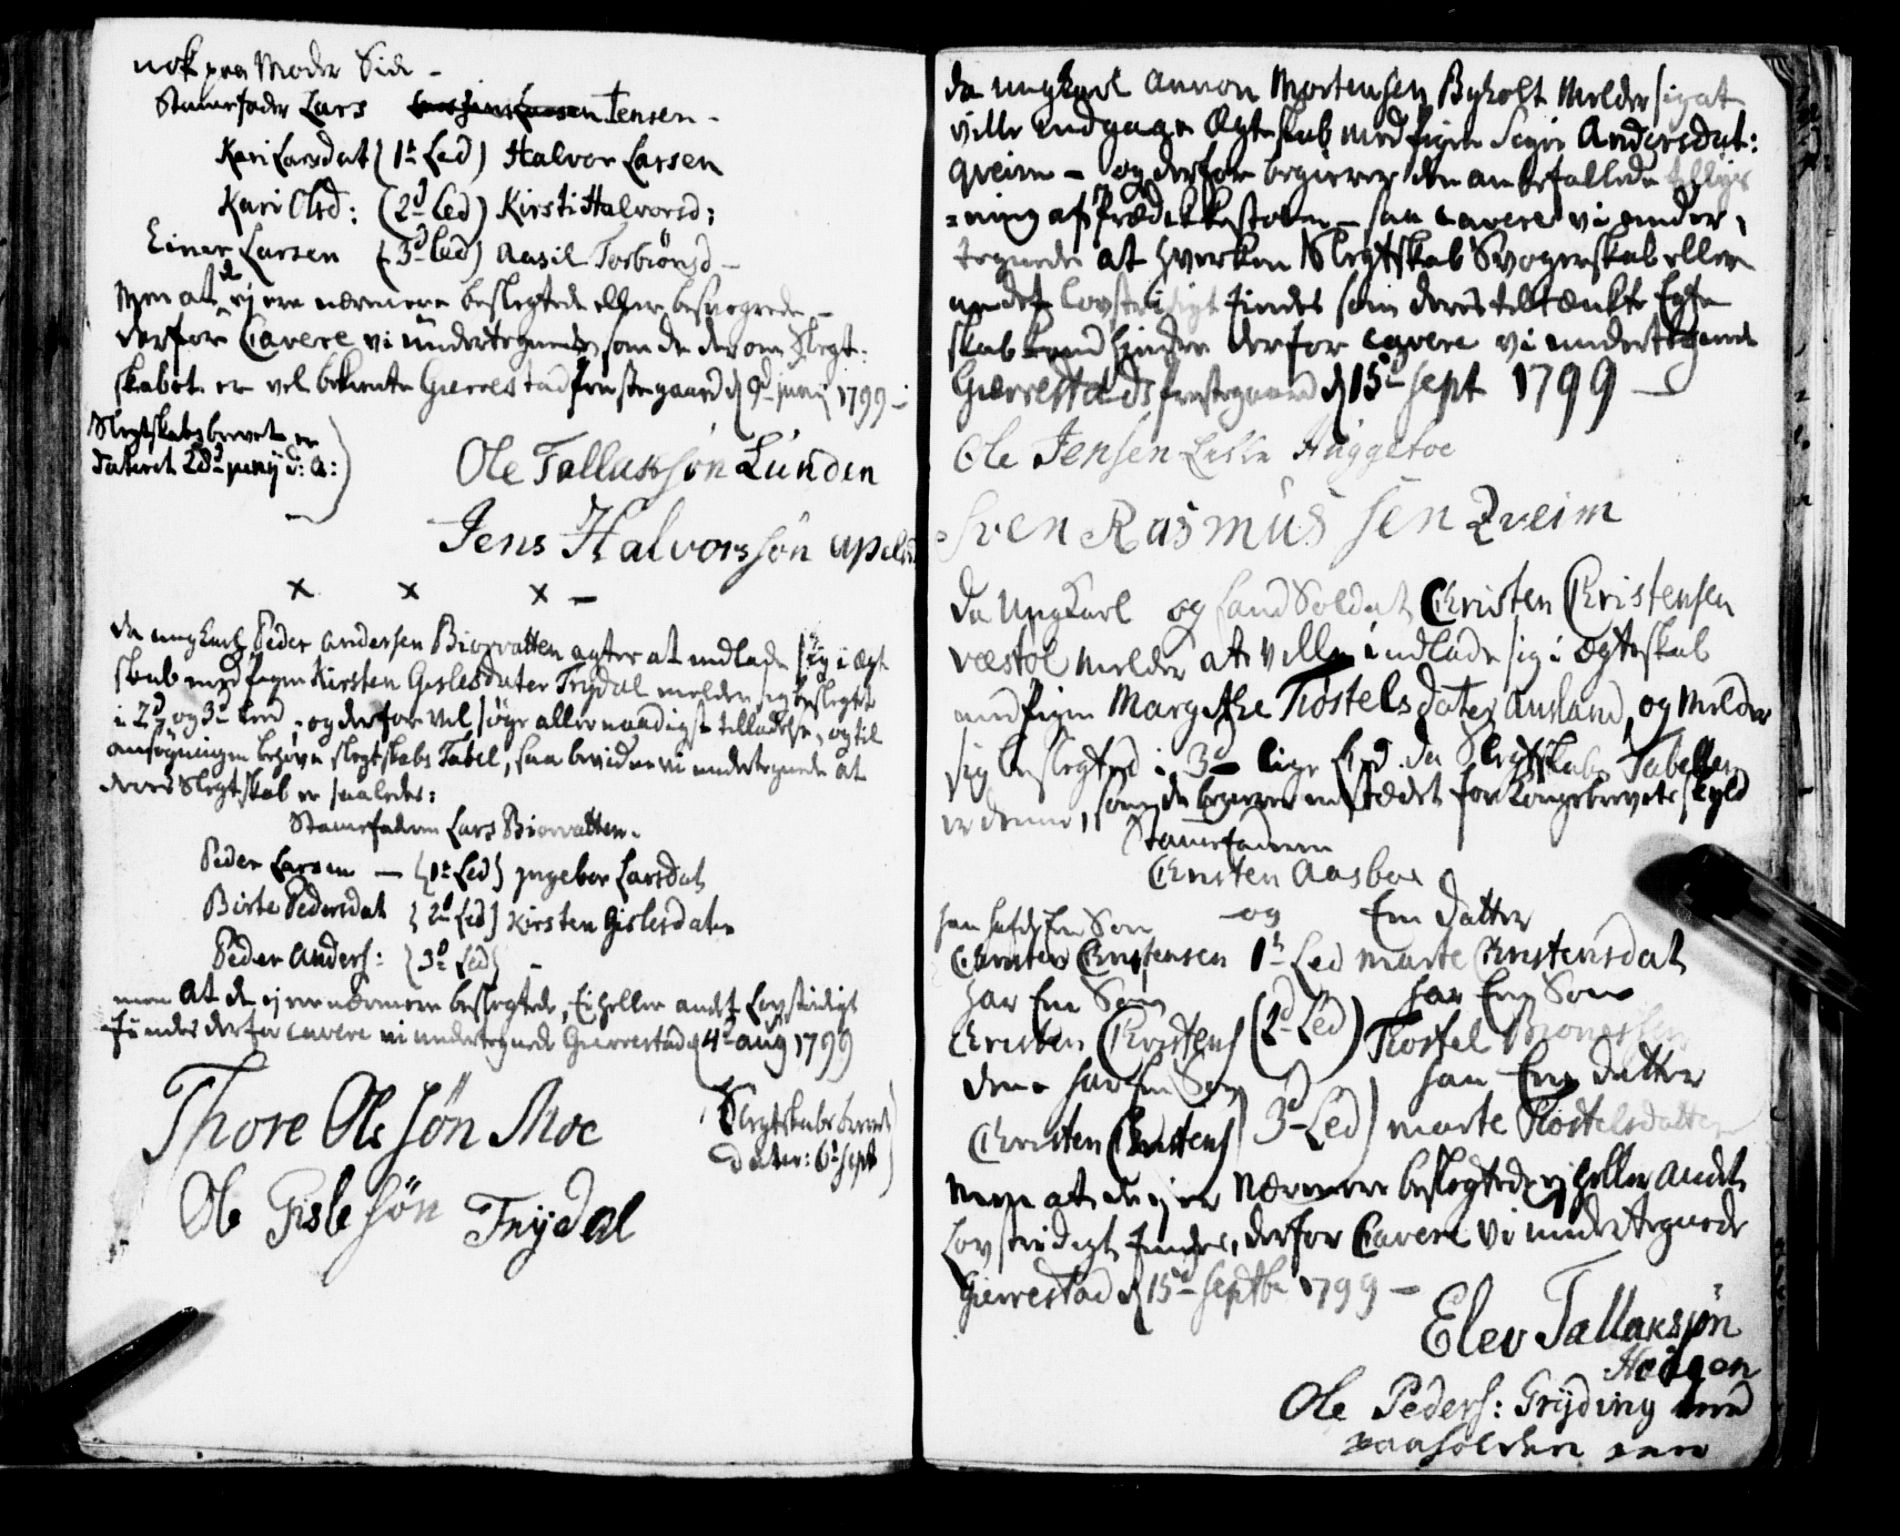 nok paa Moder Side -
Stamfader Lars Jensen -
Kari Larsdat (1te Led) Halvor Larsen
Kari Olsd: (2d Led) Kirsti Halvorsd:
Einer Larsen (3d Led) Aasil Torbiönsd -
Men at de ej ere nærmere beslegtede eller besvogrede -
derfor Cavere vi undertegnede som de der om Slegt-
skabet er vel bekiente Gierrestad Prestegaard d 9d junij 1799 -
Slegtskabsbrevet er
dateret 28d junij d: a:
Ole Tallaksøn Lunden
Jens Halvorssøn
x x x -
da ungkarl Peder Andersen Biorvatten agter at indlade sig i Ægt
skab med Pigen Kirsten Gislesdater Trydal melder sig beslegtet
i 2d og 3d Leed, og derfor vil søge allernaadigst tilladelse, og til
ansøgningen behøve slegtskabs Tabel, saa bevidne vi undertegnede at
deres Slegtskab er saaledes:
Stamfaderen Lars Biorvatten.
Peder Larsen - (1te Led) Ingebor Larsdat
Birte Pedersdat (2d Led) Kirsten Gislesdater
Peder Anders: (3d Led) -
men at de ej ere nærmere beslegtede, Ej heller andet Lovstridigt
findes derfor cavere vi undertegnede Gierrestad d 4d aug 1799
Thore Olssøn Moe
Slegtskabsbrevet
dater: 6d sept
Ole Gislesøn Trydal
da ungkarl Aanon Mortensen Byholt Melder sig at
ville indgaae Ægteskab med Pigen Sigri Andersdat:
Qveim - og derfor begierer den anbefallede tillys
=ning af Prædikestolen - saa cavere vi under,
tegnede at hverken Slegtskab Svogerskab eller
andet lovstridigt findes som deres tiltænkte Egte
skab kand hindre derfor cavere vi undertegnede
Gierrestads Prestegaard d 15d sept 1799 -
Ole Jensen Lille Huggetoe
Sven Rasmussen Qveim
da Ungkarl og Land Soldat Christen Christensen
væstøl Melder at ville indlade sig i Ægteskab
med Pigen Margethe Kostelsdater Ausland, og Melder
sig beslegted i 3d lige Led da Slegtskabs Tabellen
er denne, som de begierer indstædet for Kongebrevets skyld
Stamfaderen
Christen Aasboe
han hafde Een Søn - og Een Datter
Christen Christensen 1te Led Marte Christensdat
har Een Søn har Een Søn
Christen Christens (2d Led) Kostel
denne har Een Søn han Een Datter
Christen Christens (3d Led) Marte Kostelsdatter
Men at de ej er Nærmere beslegtede ej heller andet
Lovstridigt findes, derfor Cavere Vi undertegnede
Gierrestad d 15d Septbr 1799 -
Elev Tallaksøn
Ole Peders: Gryting